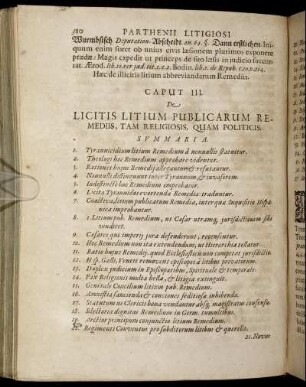 110 PARTHENII LITIGIOSI
Wurmbsisch Deputation Abscheidt an. 64. §. Dann erstlichen: Ini-
quum enim foret ob unius civis læsionem plurimos exponere
prædæ: Magis expedit ut princeps de suo læsis in judicio faceret.
Hæc de illicitis litium abbreviandarum Remediis.
CAPUT III.
De
LICITIS LITIUM PUBLICARUM RE-
MEDIIS, TAM RELIGIOSIS, QUAM POLITICIS.
SUMMARIA.
1. Tyrannicidium litium Remedium à nonnullis statuitur.
2. Theologi hoc Remedium approbare videntur.
3. Rationes huius Remedii adferuntur & refutantur.
4. Nonnulli distinguunt inter Tyrannum, & invasorem.
5. Indefinitè hoc Remedium improbatur.
6. Licita Tyrannidis evertendæ Remedia traduntur.
7. litium publicarum Remedia, inter quæ Inquisitio Hispa-
nica improbantur.
8. Litium pub. Remedium, ut Cæsar utramq; jurisdictionem sibi
vendicet.
9. Cæsares qui imperij jura defenderunt, recensentur.
10. Hoc Remedium non ita extendendum, ut Hierarchia tollatur.
11. Ratio hujus Remedij, quod Ecclesiasticis non competat jurisdictio.
12. Hisp. Galli, Veneti removent episcopos à litibus privatorum.
13. Duplex judicium in Episcopatibus, Spirituale & temporale.
14. Pax Religionis multa bella, & litigia extinguit.
15. Generale Concilium litium pub. Remedium.
16. Amnestia sancienda & conciones seditiosæ inhibendæ.
17. Statutum ne Clerici bona vendantur absq; magistratus consensu.
18. Idoltatria dogmatis Remedium in Germ. inutile.
19. Arctior principum conjunctio litium Remedium.
20. Regimenti Conventus pro subditorum litibus & querelis.
21. Novum